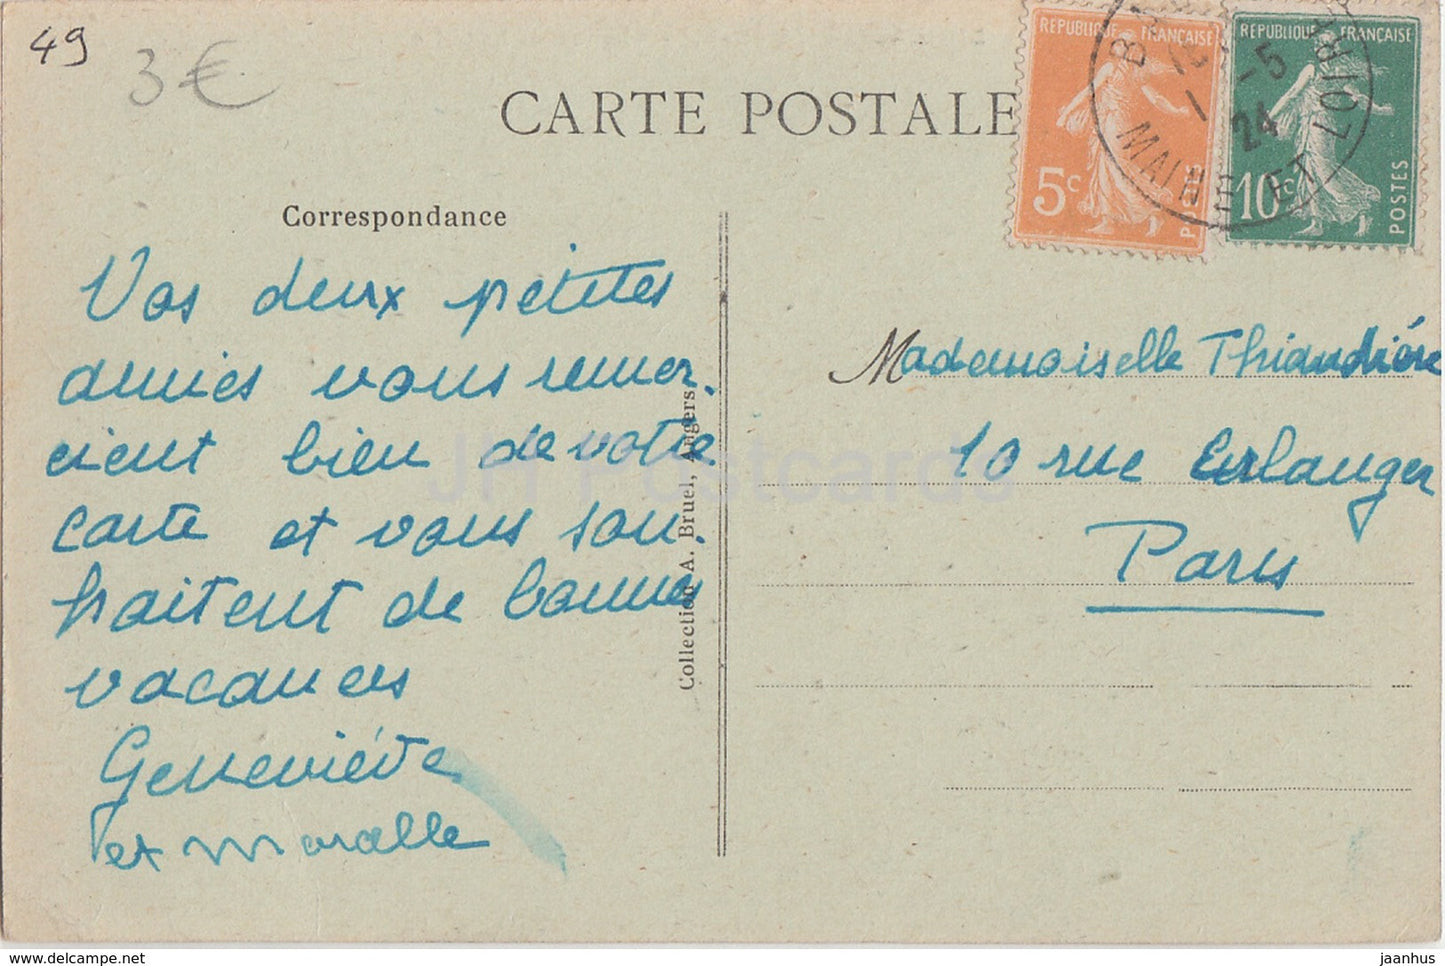 49
3€
CARTE POSTALE
REPUBLIQUE FRANÇAISE
5c
POSTES
REPUBLIQUE FRANÇAISE
10c
POSTES
-5
24
MAINE ET LOIRE
Correspondance
Vos deux petites
amies vous remer.
cient bien de votre
carte et vous sou.
haitent de bonnes
vacances
Geneviève
et
Mademoiselle Thiandière
10 rue Erlanger
Paris
Collection A. Bruel, Angers
JH Postcards
delcampe.net
jaanhus